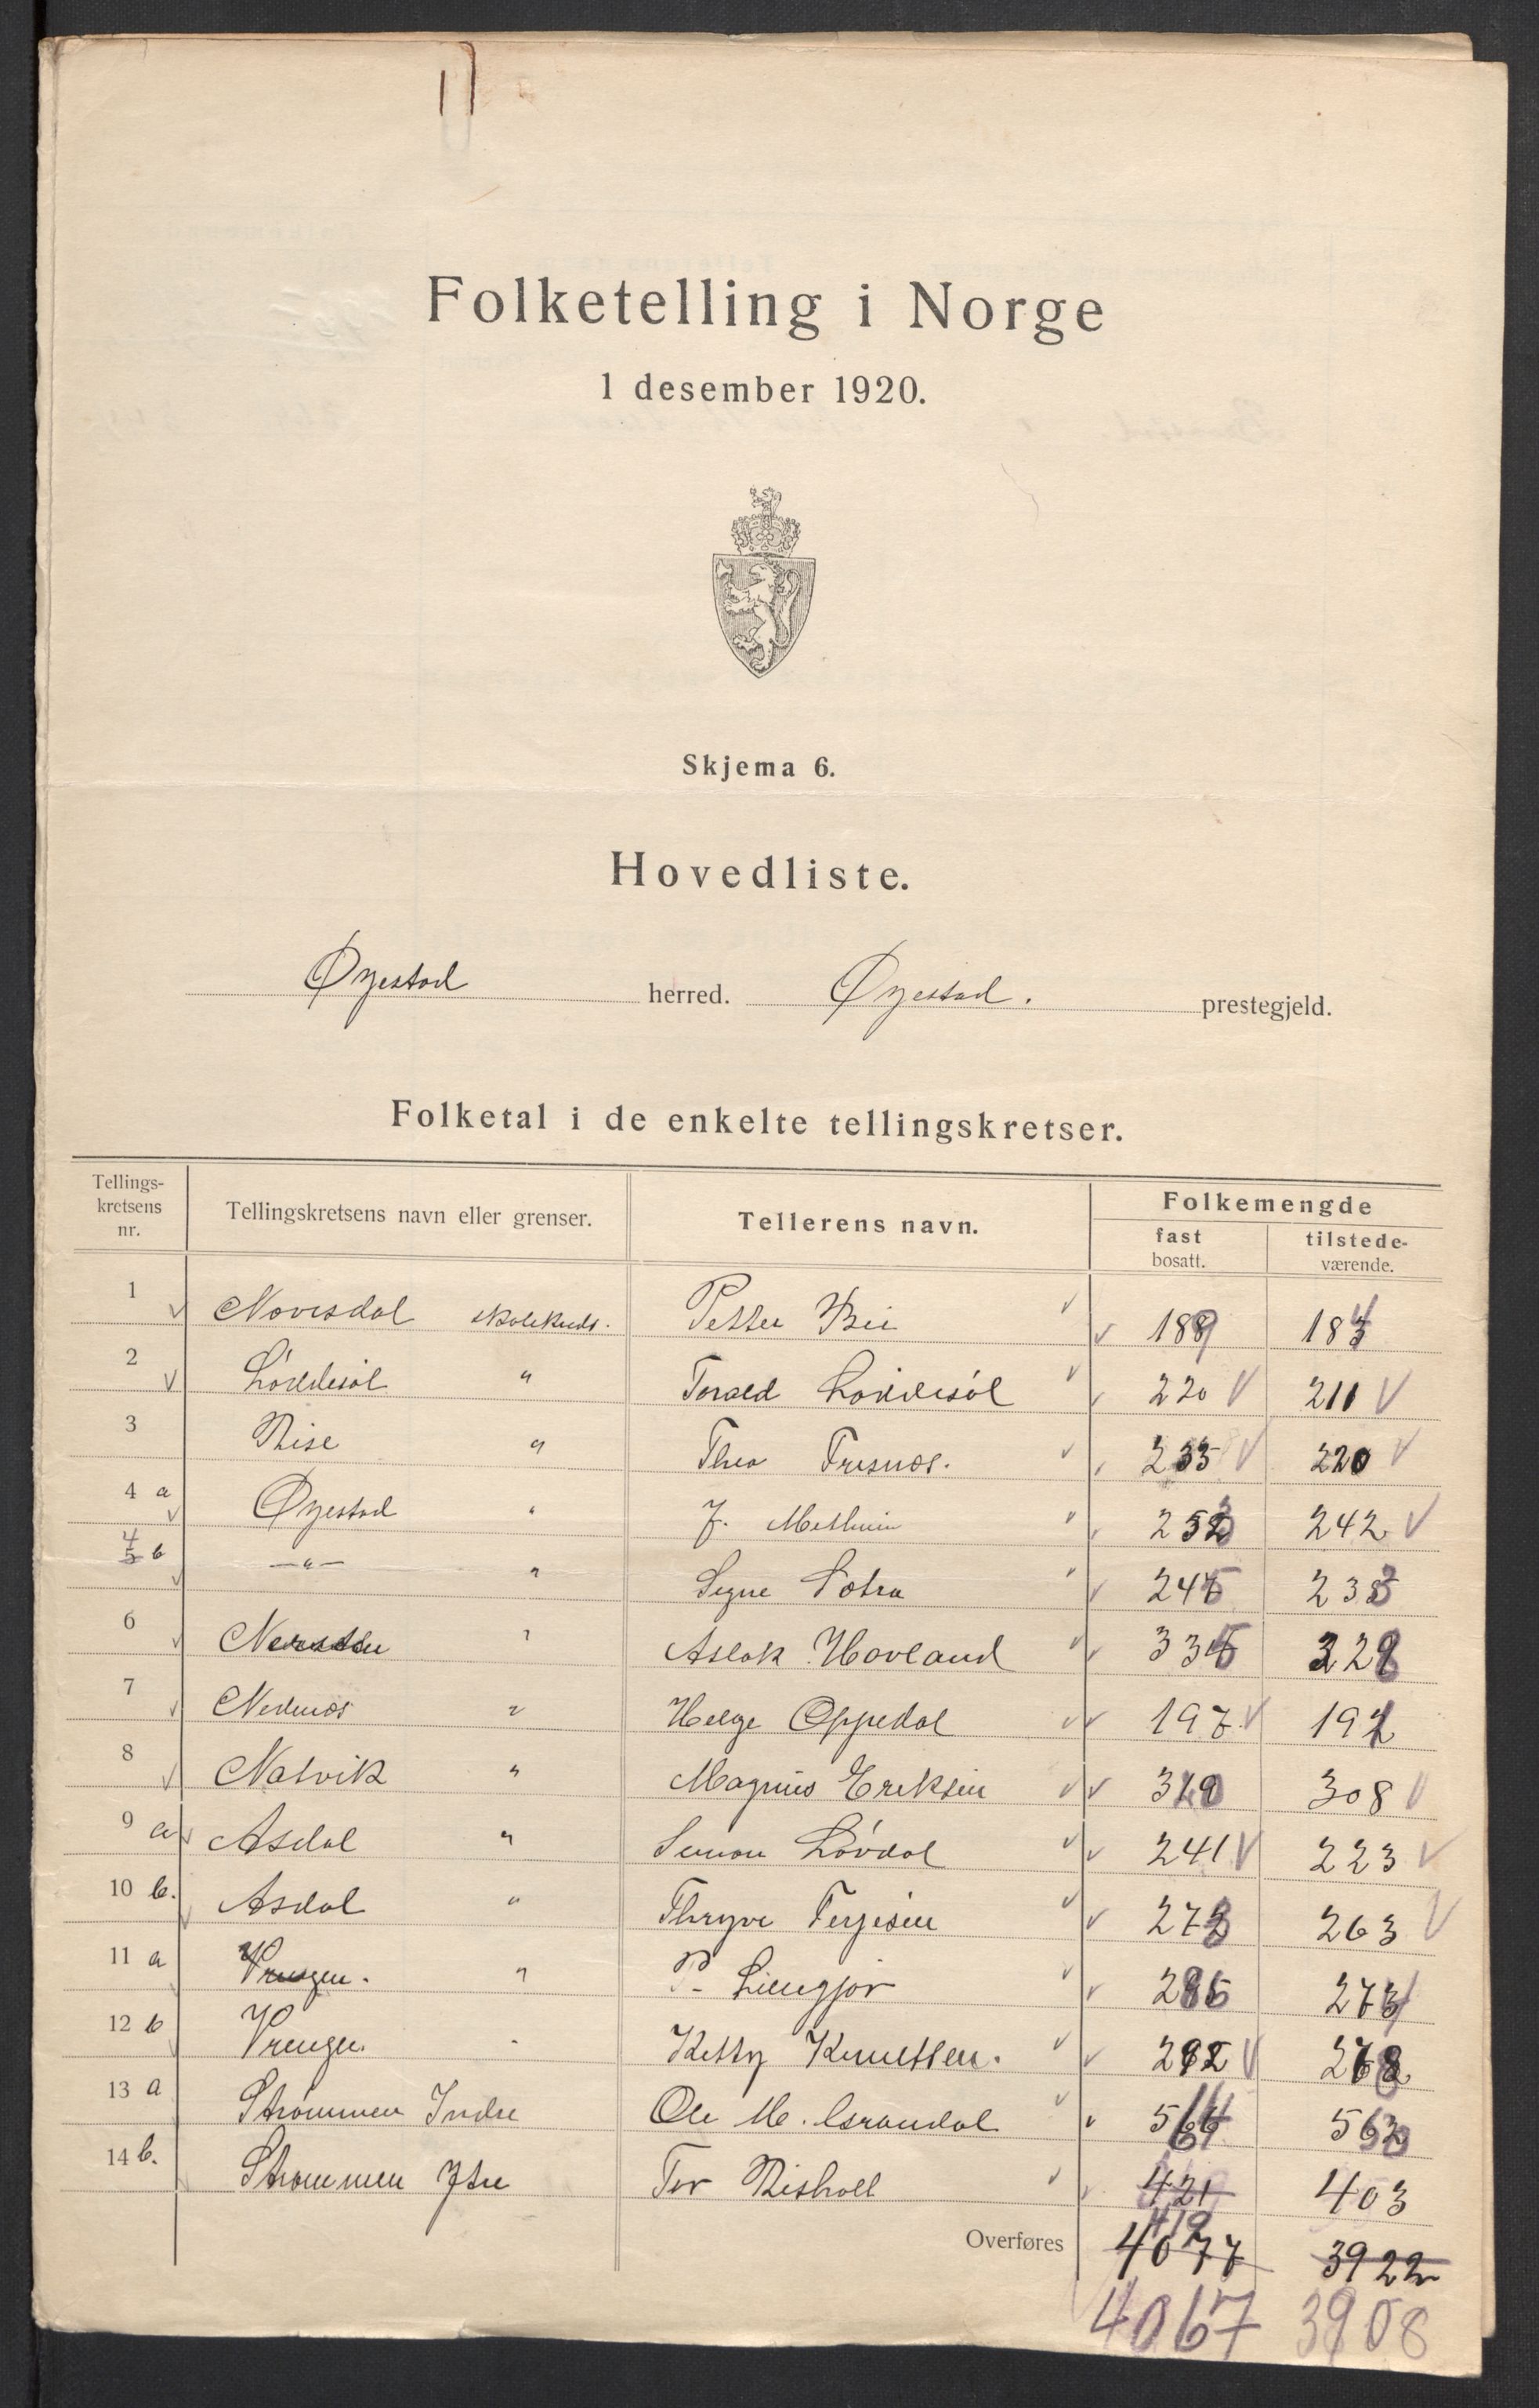 Folketelling i Norge
1 desember 1920.
Skjema 6.
Hovedliste.
Øyestad herred. Øyestad. prestegjeld.
Folketal i de enkelte tellingskretser.
Tellings-kretsens nr. Tellingskretsens navn eller grenser. Tellerens navn. Folkemengde
fast bosatt. tilstede-værende.
1 Novesdal Petter 189 184
2 Løddesøl " Torald Løddesøl 220 211
3 Rise " Thea Fresnes. 235 220
4 a Øyestad " J. 253 242
4 b —"— " Signe 245 233
6 " Aslak Hovland 335 328
7 Nedenes " Helge Oppedal 197 191
8 Natvik " Magnus Eriksen 320 308
9 a Asdal " Simon Løvdal 241 223
10 b. Asdal " Terjesen 273 263
11 a Vrengen. " P.
12 b Vrengen. " Ketty Knudtsen. 292
13 a Strømmen Indre Ole M.
14 b. Strømmen Ytre Tor Risholt 421 403
419
Overføres 4077 3922
4067 3908